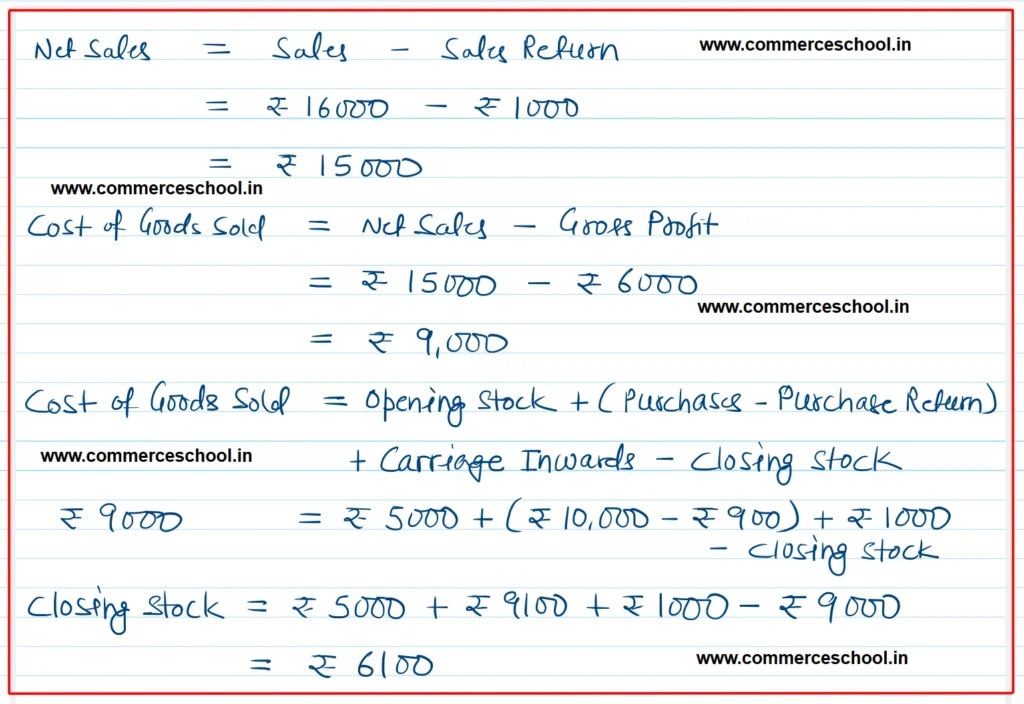 Net Sales = Sales - Sales Return www.commerceschool.in
= ₹ 16000 - ₹ 1000
= ₹ 15000
www.commerceschool.in
Cost of Goods Sold = Net Sales - Gross Profit
= ₹ 15000 - ₹ 6000
www.commerceschool.in
= ₹ 9,000
Cost of Goods Sold = Opening Stock + (Purchases - Purchase Return)
www.commerceschool.in + Carriage Inwards - Closing Stock
₹ 9000 = ₹ 5000 + (₹ 10,000 - ₹ 900) + ₹ 1000
- Closing Stock
Closing Stock = ₹ 5000 + ₹ 9100 + ₹ 1000 - ₹ 9000
= ₹ 6100 www.commerceschool.in